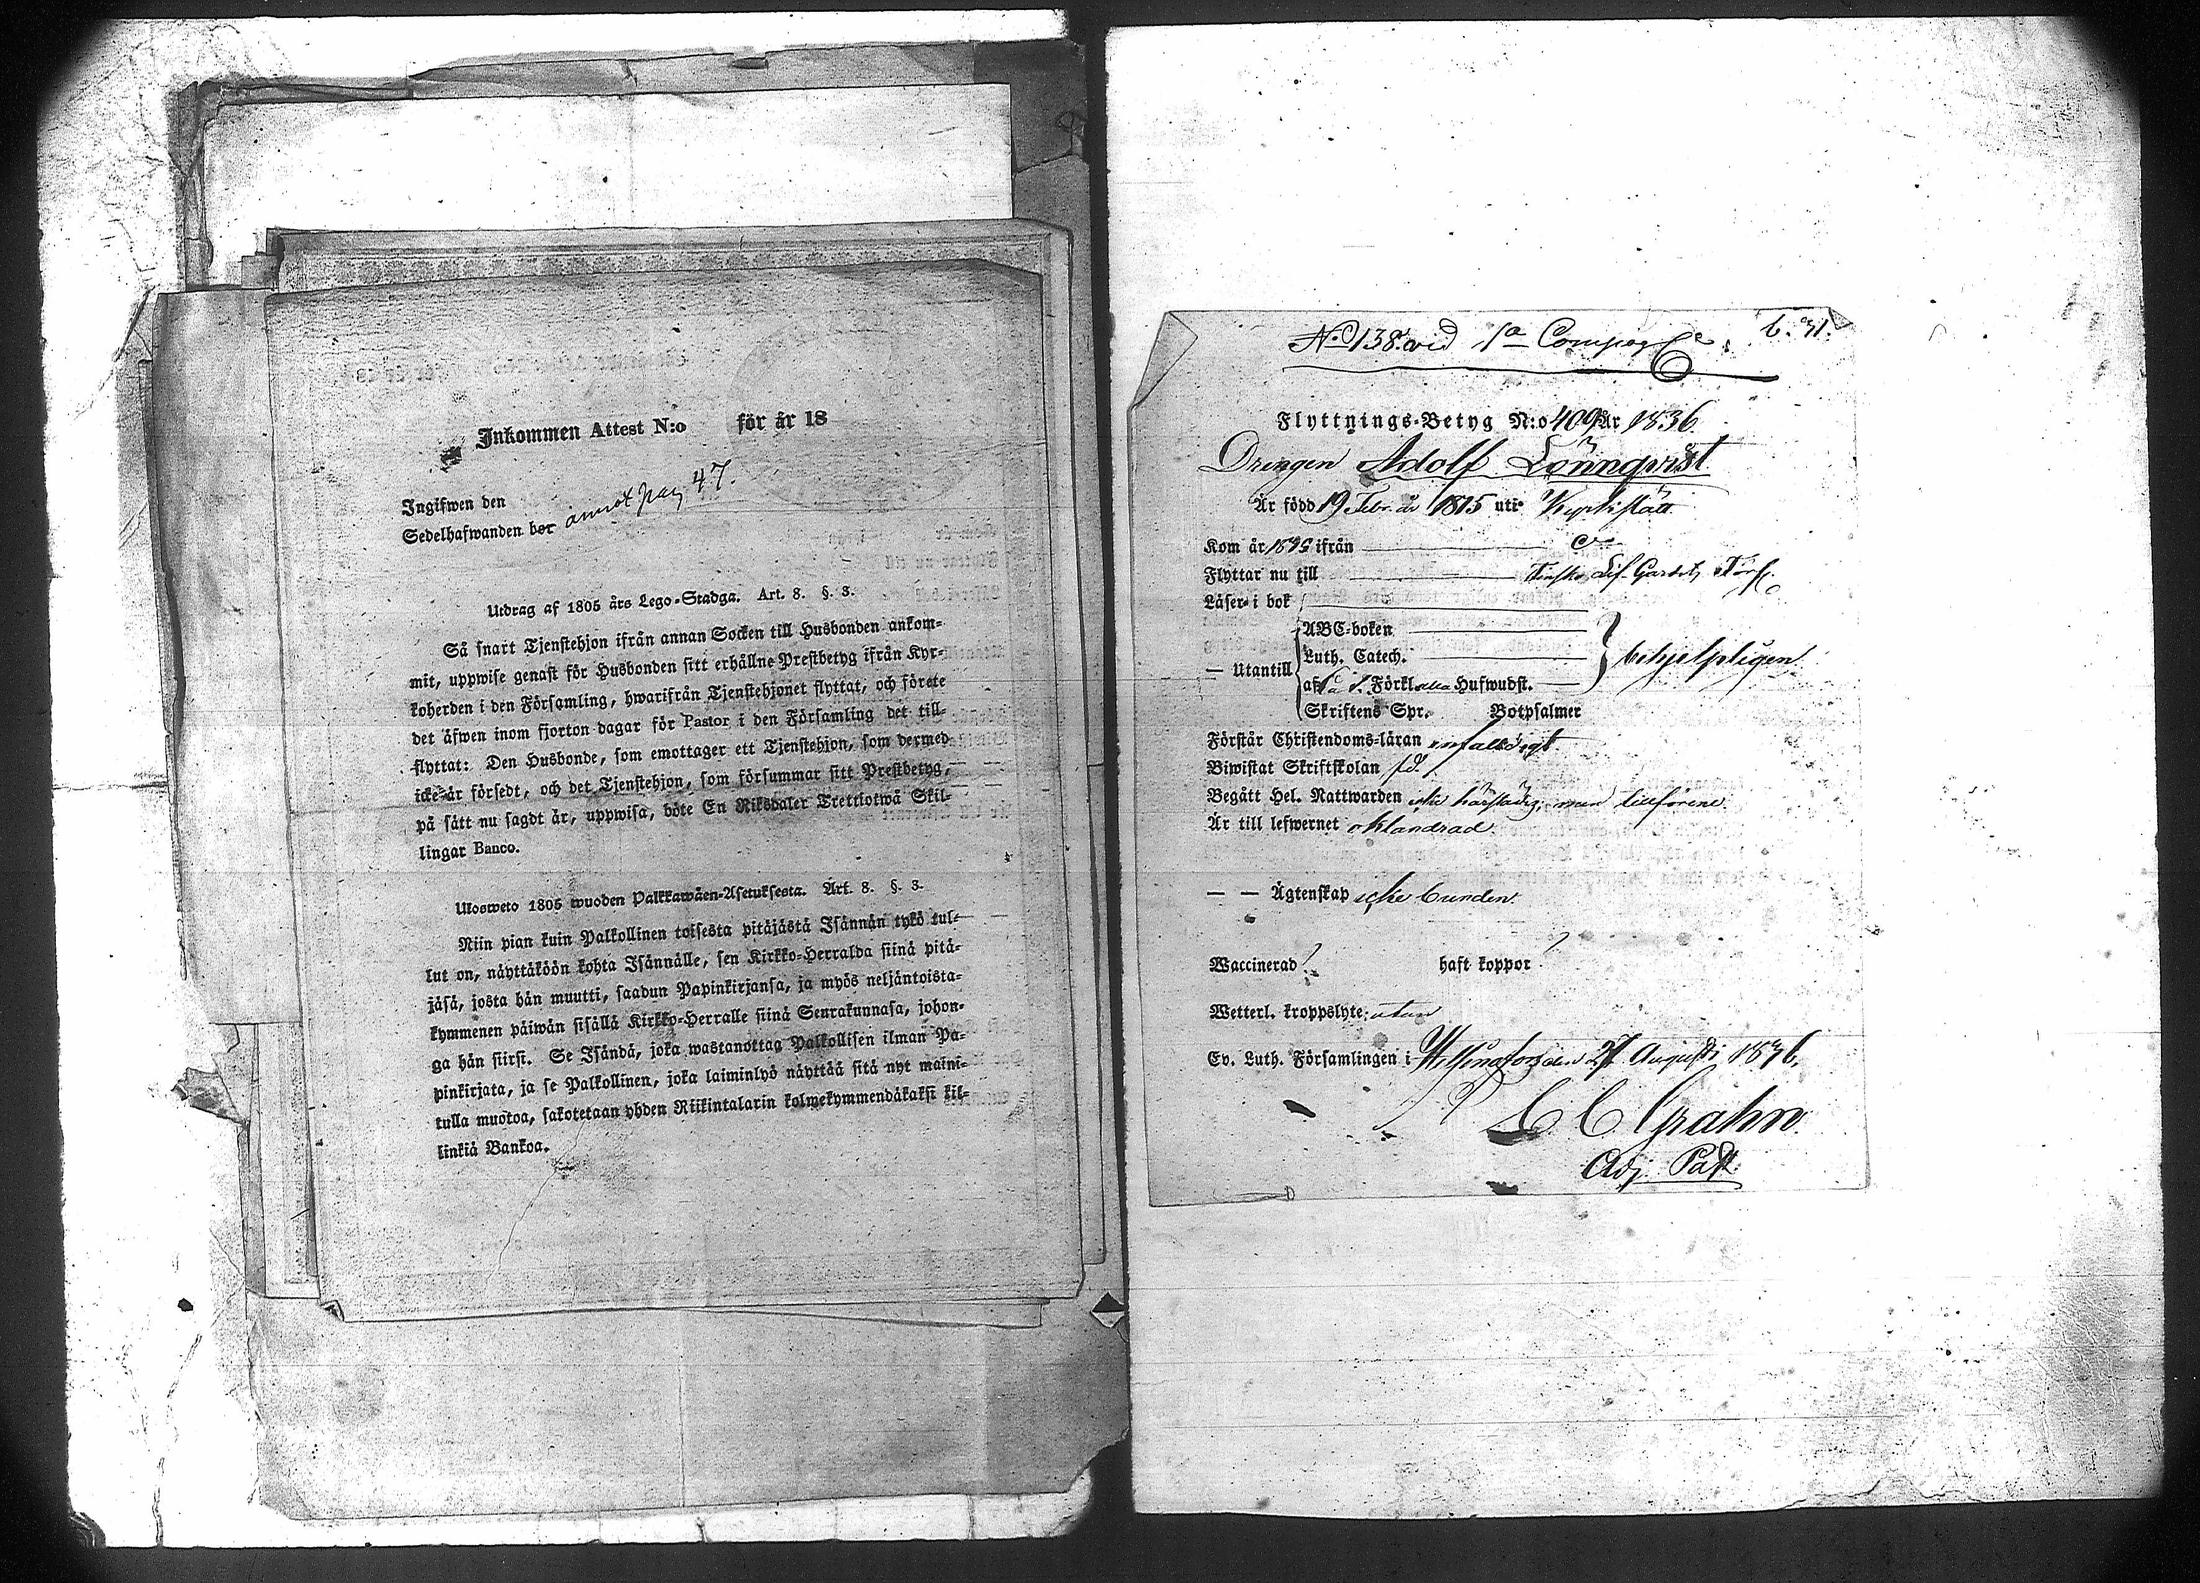 Inkommen Attest N:o för år 18
Ingifwen den
Sedelhafwanden bor annot pag 47.
Utdrag af 1805 års Lego-Stadga. Art. 8. §. 3.
Så snart Tjenstehjon ifrån annan Socken till Husbonden ankom-
mit, uppwise genast för Husbonden sitt erhållne Prestbetyg ifrån Kyr-
koherden i den Församling, hwarifrån Tjenstehjonet flyttat, och förete
det äfwen inom fjorton dagar för Pastor i den Församling det till-
flyttat: Den Husbonde, som emottager ett Tjenstehjon, som dermed
icke är försedt, och det Tjenstehjon, som försummar sitt Prestbetyg,
på sätt nu sagdt är, uppwisa, böte En Riksdaler Trettiotwå Skil-
lingar Banco.
Ulosweto 1805 wuoden Palkkawäen-Asetuksesta. Art. 8. §. 3.
Niin pian kuin Palkollinen toisesta pitäjästä Isännän tykö tul-
lut on, näyttäköön kohta Isännälle, sen Kirkko-Herralda siinä pitä-
jäsä, josta hän muutti, saadun Papinkirjansa, ja myös neljäntoista-
kymmenen päiwän sisällä Kirkko-Herralle siinä Seurakunnasa, johon-
ga hän siirsi. Se Isändä, joka wastanottaa Palkollisen ilman Pa-
pinkirjata, ja se Palkollinen, joka laiminlyö näyttää sitä nyt maini-
tulla muotoa, sakotetaan yhden Riikintalarin kolmekymmendäkaksi kil-
linkiä Bankoa.
N:o 138 vid 1a Compag
Flyttnings-Betyg N:o 409 År 1836
Drengen Adolf Lönnqvist
Är född 19 Febr. år 1815 uti Kyrkslätt
Kom år 1835 ifrån
Flyttar nu till Finska Lif Gardets
Läser i bok
ABC-boken
Luth. Catech.
— Utantill behjelpligen.
af Förkl. Hufwudst.
Skriftens Spr. Botpsalmer
Förstår Christendoms-läran enfaldigt
Biwistat Skriftskolan
Begått Hel. Nattwarden icke härstädes, men tillförene.
Är till lefwernet oklandrad
— — Ägtenskap icke bunden
Waccinerad ? haft koppor ?
Wetterl. kroppslyte; utan
Ev. Luth. Församlingen i Helsingfors den 27 Augusti 1836.
C C Grahn
Adj. Past.